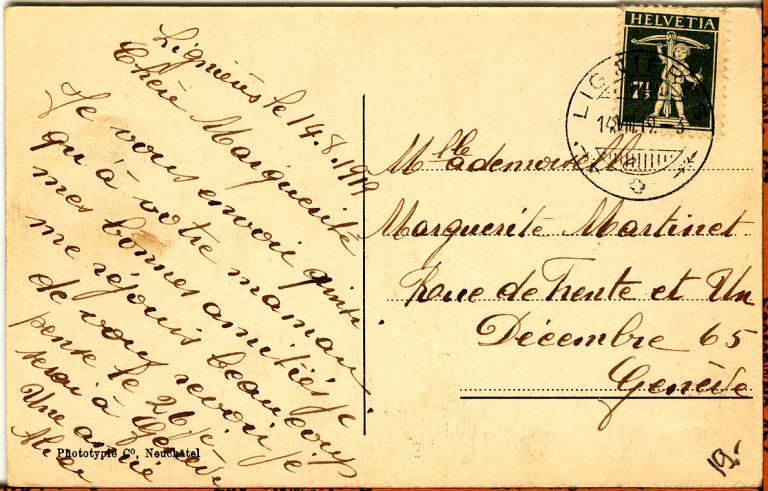 Lignières le 14.8.1919
Chère Marguerite
Je vous envoie ainsi
qu'à votre maman
mes bonnes amitiés je
me réjouis beaucoup
de vous revoir je
pense le 26 je
serai à Genève
Une amie
Phototypie Co. Neuchâtel
HELVETIA
7½
LIGNIÈRES
14.VIII.19.-3
Mademoiselle
Marguerite Martinet
Rue de Trente et Un
Décembre 65
Genève
19.-